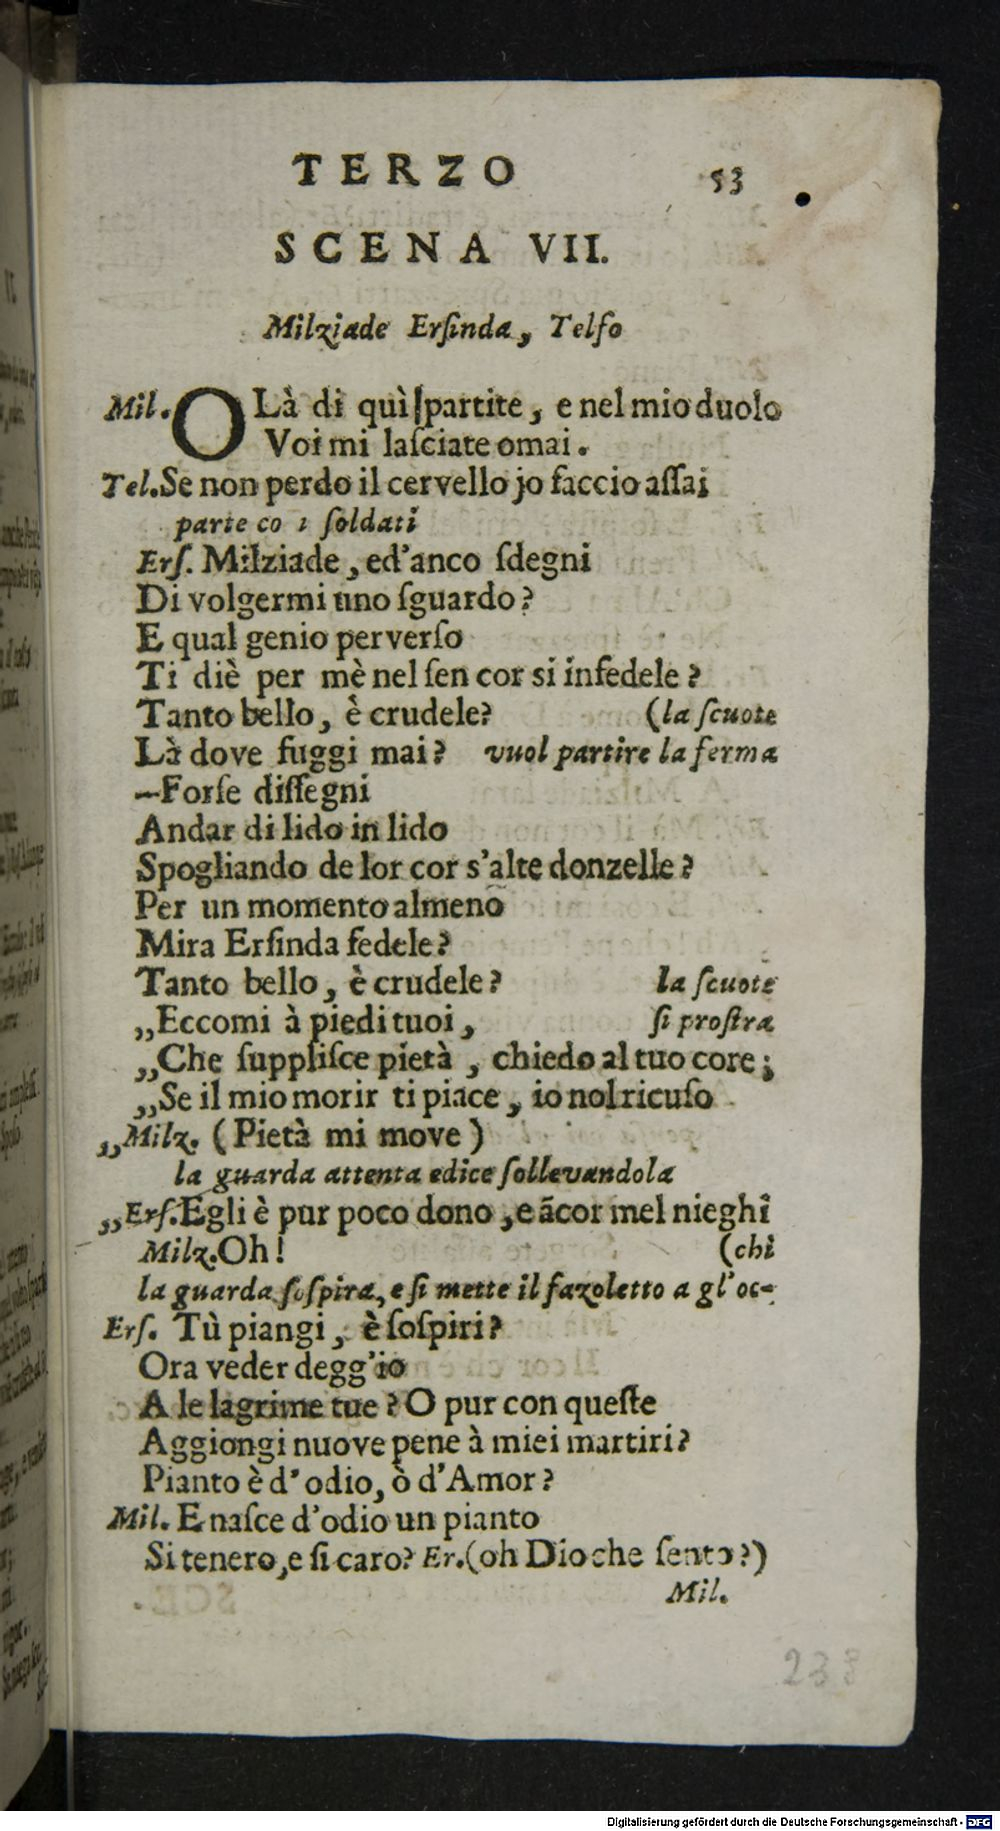 TERZO 53
SCENA VII.
Milziade Erſinda, Telſo
Mil. OLà di quì partite, e nel mio duolo
Voi mi laſciate omai.
Tel. Se non perdo il cervello jo faccio aſſai
parte co i ſoldati
Erſ. Milziade, ed'anco ſdegni
Di volgermi uno ſguardo?
E qual genio perverſo
Ti diè per mè nel ſen cor si infedele?
Tanto bello, è crudele? (la ſcuote
Là dove fuggi mai? vuol partire la ferma
—Forſe diſſegni
Andar di lido in lido
Spogliando de lor cor s'alte donzelle?
Per un momento almeno
Mira Erſinda fedele?
Tanto bello, è crudele? la ſcuote
„Eccomi à piedi tuoi, ſi proſtra
„Che ſuppliſce pietà, chiedo al tuo core;
„Se il mio morir ti piace, io nol ricuſo
„Milz. (Pietà mi move)
la guarda attenta edice ſollevandola
„Erſ. Egli è pur poco dono, e ãcor mel nieghi
Milz. Oh! (chi
la guarda ſoſpira, e ſi mette il fazoletto a gl'oc-
Erſ. Tù piangi, è ſoſpiri?
Ora veder degg'io
A le lagrime tue? O pur con queſte
Aggiongi nuove pene à miei martiri?
Pianto è d'odio, ò d'Amor?
Mil. E naſce d'odio un pianto
Si tenero, e ſi caro? Er. (oh Dio che ſento?)
Mil.
238
Digitalisierung gefördert durch die Deutsche Forschungsgemeinschaft - DFG